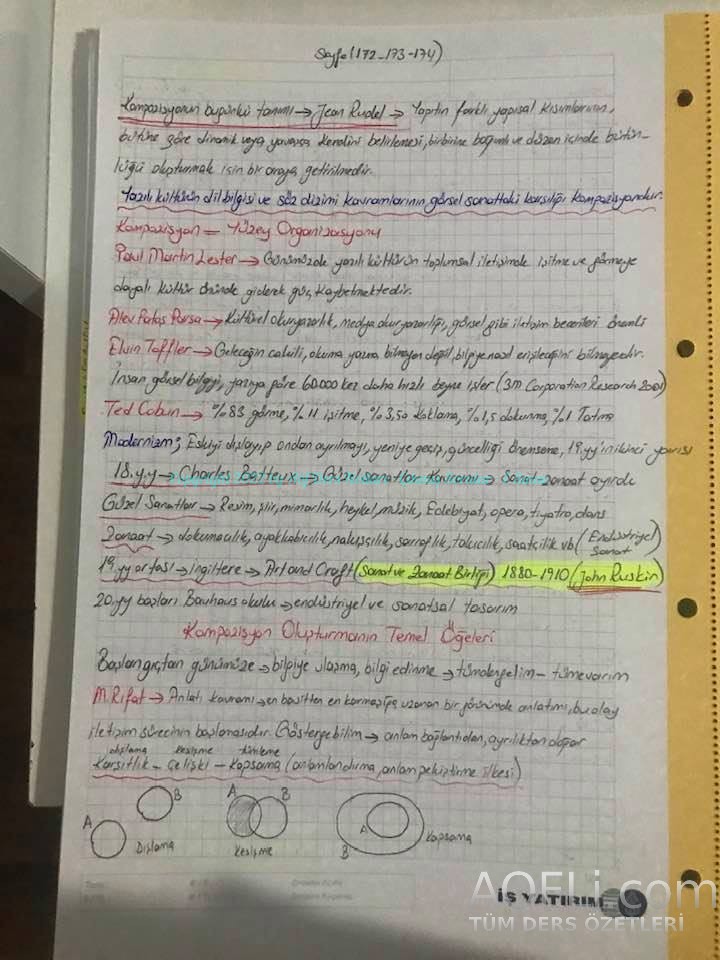 Sayfa (172-173-174)
Kompozisyonun bugünkü tanımı → Jean Rudel → Yapıtın farklı yapısal kısımlarının,
bütüne göre dinamik veya yavaşça kendini belirlemesi, birbirine bağımlı ve düzen içinde bütün-
lüğü oluşturmak için bir araya getirilmedir.
Yazılı kültürün dil bilgisi ve söz dizimi kavramlarının, görsel sanattaki karşılığı kompozisyondur.
Kompozisyon = Yüzey Organizasyonu
Paul Martin Lester → Günümüzde yazılı kültürün toplumsal iletişimde işitme ve görmeye
dayalı kültür önünde giderek güç kaybetmektedir.
Alev Parsa → Kültürel okuryazarlık, medya okuryazarlığı, görsel gibi iletişim becerileri önemli
Elvin Toffler → Geleceğin cahili, okuma yazma bilmeyen değil, bilgiye nasıl erişileceğini bilmeyendir.
İnsan görsel bilgiyi, yazıya göre 60.000 kez daha hızlı beyne işler (3M Corporation Research 2001)
Ted Coban → %83 görme, %11 işitme, %3,50 Koklama, %1,5 dokunma, %1 Tatma
Modernizm; Eskiyi dışlayıp ondan ayrılmayı, yeniye geçiş, güncelliği önemseme, 19.yy'ın ikinci yarısı
18.y.y → Charles Batteux → Güzel sanatlar Kavramı → Sanat-zanaat ayırdı
Güzel Sanatlar → Resim, şiir, mimarlık, heykel, müzik, Edebiyat, opera, tiyatro, dans
Zanaat → dokumacılık, ayakkabıcılık, nakışçılık, sarraflık, takıcılık, saatçilik vb (Endüstriyel
Sanat)
19.yy ortası → ingiltere → Art and Craft (Sanat ve Zanaat Birliği) 1880-1910 (John Ruskin)
20.yy başları Bauhaus okulu → endüstriyel ve sanatsal tasarım
Kompozisyon Oluşturmanın Temel Öğeleri
Başlangıçtan günümüze → bilgiye ulaşma, bilgi edinme → tümdengelim - tümevarım
M.Rifat → Anlatı kavramı → en basitten en karmaşığa uzanan bir görünümde anlatımı, bu olay
iletişim sürecinin başlamasıdır. Göstergebilim → anlam bağlantıdan, ayrılıktan doğar
dışlama kesişme
Karşıtlık - Çelişki - Kapsama (anlamlandırma, anlam pekiştirme ilkesi)
A B Dışlama
A B Kesişme
A B Kapsama
İŞ YATIRIM
AOELi.com
TÜM DERS ÖZETLERİ